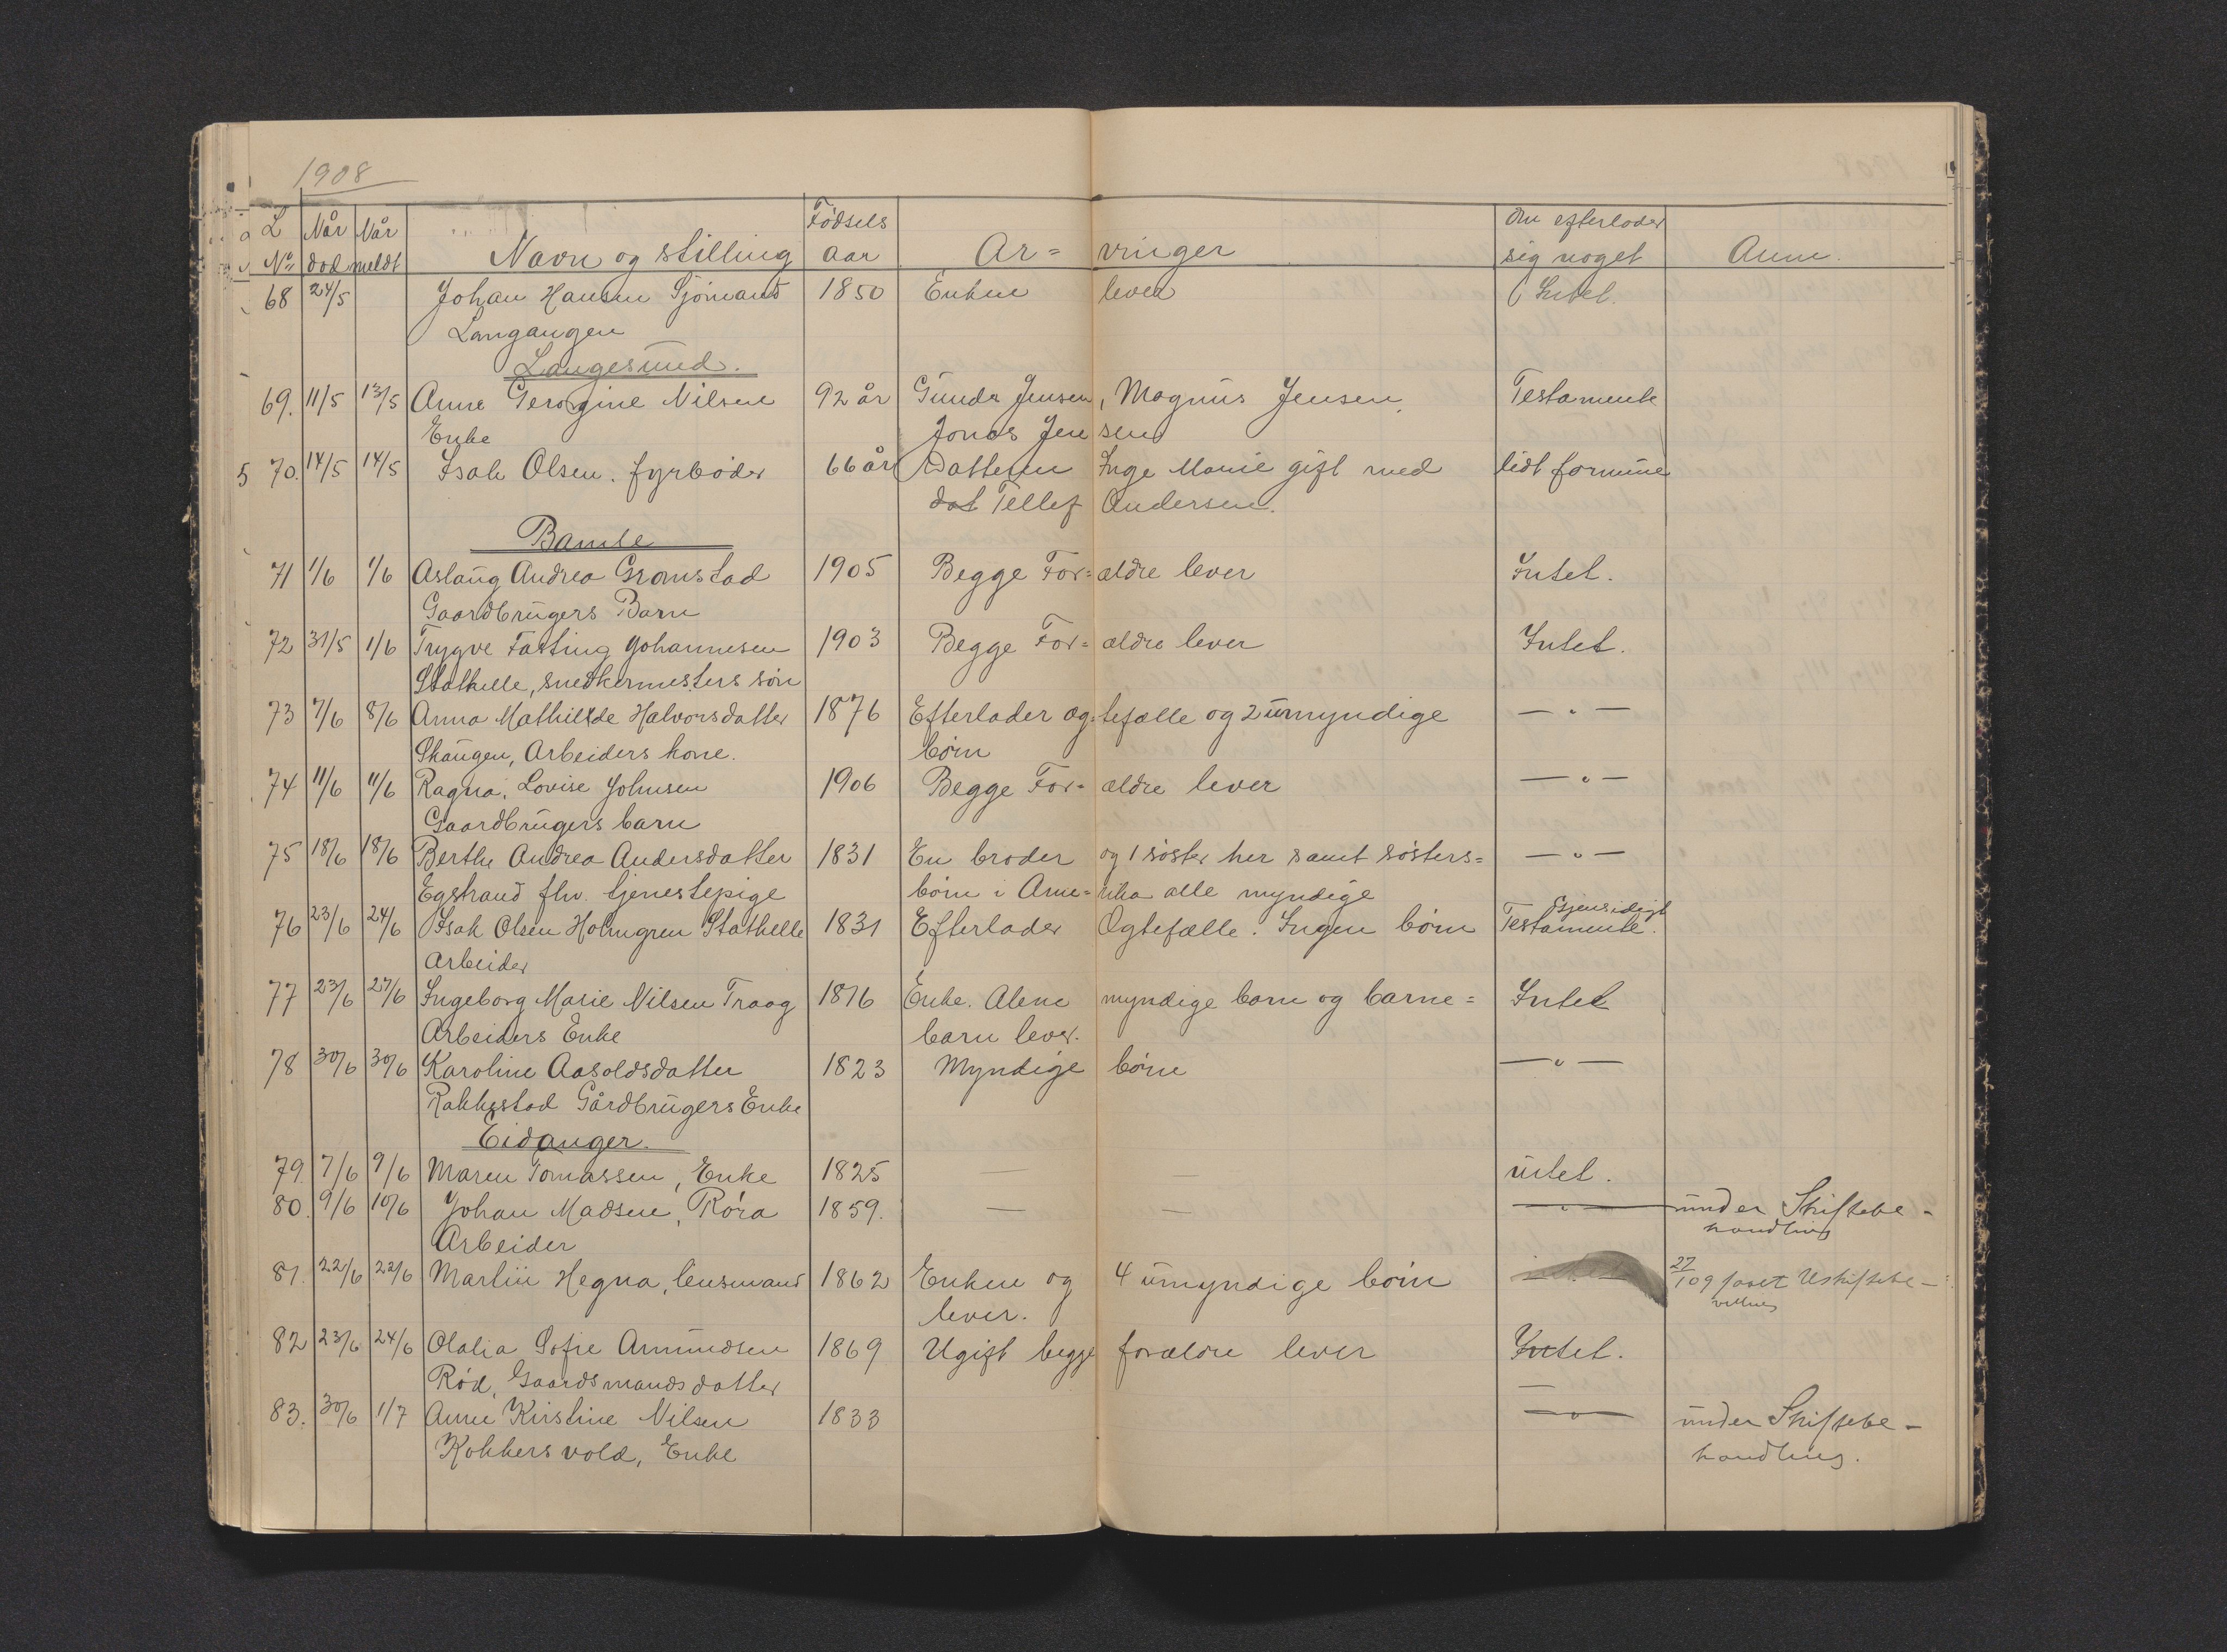 1908
L Når Når Fødsels Om efterlader
No död meldt Navn og stilling aar Ar= vinger sig noget Anm.
68 24/5 Johan Hansen Sjömand 1850 Enken lever Intet.
Langangen
Langesund.
69. 11/5 13/5 Anne Gerogine Nilsen 92 år Gunda Jensen, Magnus Jensen,
Enke Jonas Jensen Testamente
5 70. 14/5 14/5 Isak Olsen. fyrböder 66 år Datteren Inge Marie gift med lidt formue
dat Tellef Andersen.
Bamle
71 1/6 1/6 Aslaug Andrea Gromstad 1905 Begge For= ældre lever Intet.
Gaardbrugers Barn
72 31/5 1/6 Trygve Fasting Johannesen 1903 Begge For= ældre lever Intet.
Stathelle, snedkermesters søn
73 7/6 8/6 Anna Mathilde Halvorsdatter 1876 Efterlader æg= tefælle og 2 umyndige — " —
Skaugen, Arbeiders kone. börn
74 11/6 11/6 Ragna Lovise Johnsen 1906 Begge For= ældre lever — " —
Gaardbrugers barn
75 18/6 18/6 Berthe Andrea Andersdatter 1831 En broder og 1 söster her samt sösters= — " —
Egstrand fhv. tjenestepige börn i Ame= rika alle myndige
76 23/6 24/6 Isak Olsen Holmgren Stathelle 1831 Efterlader Ægtefælle. Ingen börn Gjensidigt Testamente.
Arbeider
77 23/6 27/6 Ingeborg Marie Nilsen Traag 1816 Enke. Alene myndige barn og barne= Intet
Arbeiders Enke barn lever.
78 30/6 30/6 Karoline Aasoldsdatter 1823 Myndige börn — " —
Rakkestad Gårdbrugers Enke
Eidanger.
79. 7/6 9/6 Maren Tomassen, Enke 1825 — — intet.
80. 9/6 10/6 Johan Madsen, Röra 1859. — — — " — under Skiftebe-
Arbeider handling
81. 22/6 22/6 Martin Hegna, lensmand 1862 Enken og 4 umyndige börn 27/1 09 Uskiftebe-
lever. villing
82 23/6 24/6 Olalia Sofie Amundsen 1869 Ugift begge forældre lever Intet.
Röd, Gaardsmands datter —
83. 30/6 1/7 Anne Kirstine Nilsen 1833 — " — under Skiftebe-
Kokkersvold, Enke handling.